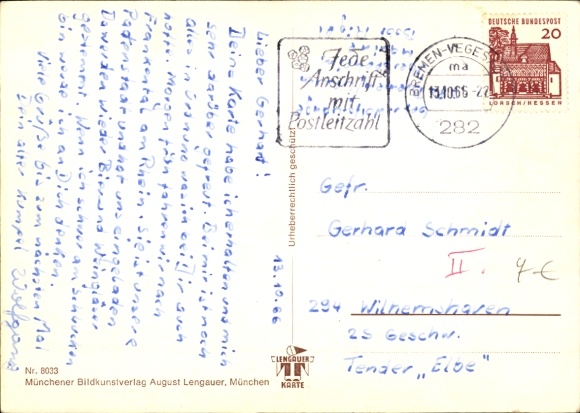 Lieber Gerhart!
Deine Karte habe ich erhalten und mich
sehr darüber gefreut. Bei mir ist noch
alles in Ordnung was in bei Dir auch
hoffe. Morgen fahren wir nach
Frankental am Rhein. Sie ist unsere
Patenstadt und hat uns eingeladen
Da werden wieder Bier und Weingläser
gestemmt. Wenn ich schwer am schlucken
bin werde ich an Dich denken.
Viele Grüße bis zum nächsten Mal
Dein alter Kumpel Wolfgang
13.10.66
Nr. 8033
Münchener Bildkunstverlag August Lengauer, München
Urheberrechtlich geschützt
LENGAUER
KARTE
Jede
Anschrift
mit
Postleitzahl
BREMEN-VEGES
ma
13.10.66
282
DEUTSCHE BUNDESPOST
20
LORSCH/HESSEN
Gefr.
Gerhard Schmidt
II. 4-€
294 Wilhemshaven
2S Geschw.
Tender „Elbe"